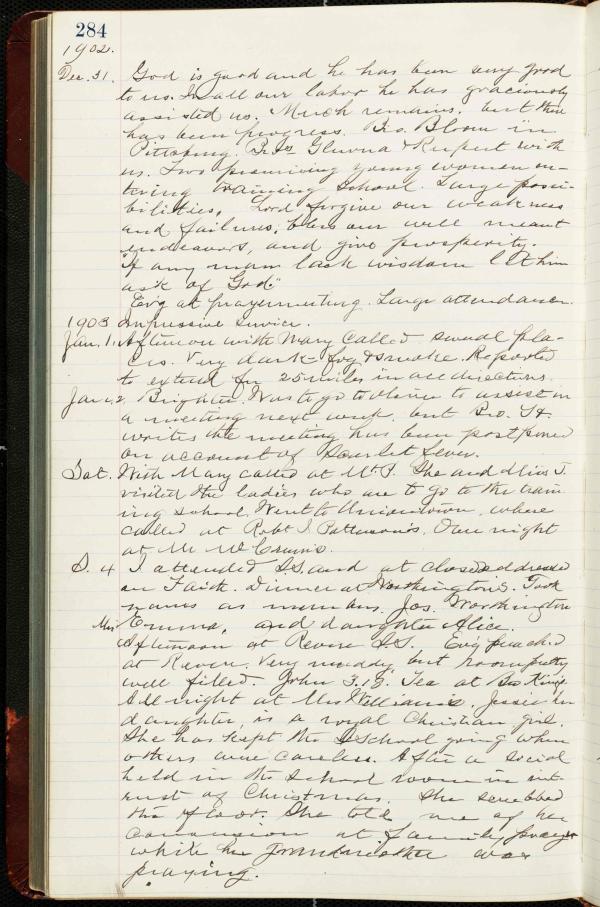 284
1902.
Dec. 31. God is good and he has been very good
to us. In all our labor he has graciously
assisted us. Much remains, but there
has been progress. Bro. Bloom in
Pittsburg. Bros & Rupert with
us. Two promising young women en-
tering training school. Large possi-
bilities. Lord forgive our weakness
and failures, bless our well meant
endeavors, and give prosperity.
"If any man lack wisdom let him
ask of God."
Ev'g at prayermeeting. Large attendance.
1903 Impressive service.
Jan. 1. Afternoon with Mary called several pla-
ces. Very dark - fog & smoke. Reported
to extend for 25 miles in all directions.
Jan 2. Brighter. Was to go to to assist in
a meeting next week, but Bro. H.
writes the meeting has been postponed
on account of Scarlet fever.
Sat. With Mary called at Mt. P. She and Miss J.
visited the ladies who are to go to the train-
ing school. Went to Uniontown, where
called at Robt. J. Patterson's. Over night
at Mr. McCrum's.
S. 4 I attended SS and at close addressed
on Faith. Dinner at Worthington's. Took
names as members. Jos. Worthington
Mrs Emma, and daughter Alice.
Afternoon at Revere SS. Ev'g preached
at Revere. Very muddy, but room pretty
well filled. John 3:18. Tea at Bro King's
All night at Mrs Williams'. Jessie her
daughter, is a royal Christian girl.
She has kept the S School going when
others were careless. After a social
held in the school room in int-
rest of Christmas. She scrubbed
the floor. She told me of her
conversion at family prayer
while her grandmother was
praying.